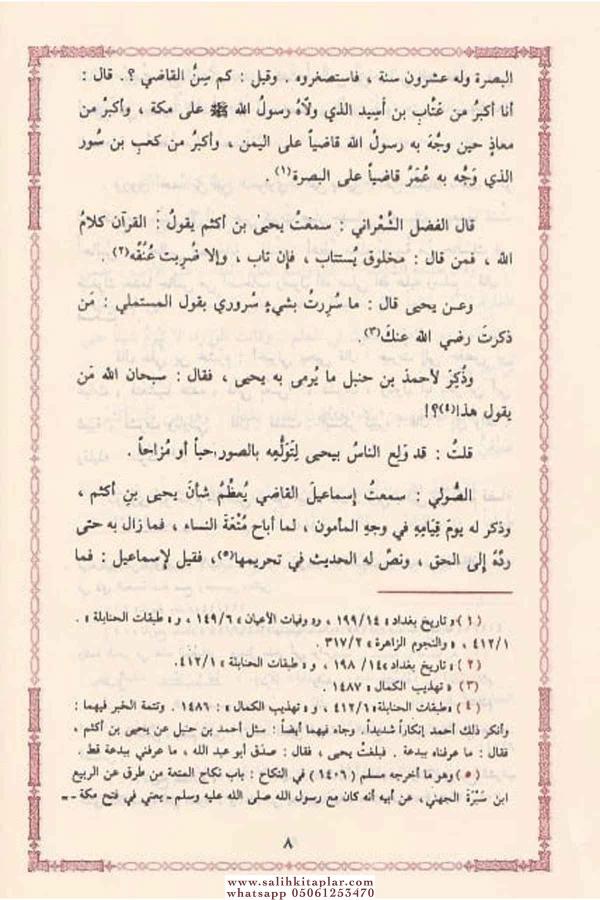 البصرة وله عشرون سنة ، فاستصغروه . وقيل : كم سِنُّ القاضي ؟. قال :
أنا أكبرُ من عَتَّابِ بن أَسِيد الذي ولاَّهُ رسولُ الله ﷺ على مكة ، وأكبرُ من
معاذٍ حين وجَّهَ به رسولُ الله قاضياً على اليمن ، وأكبرُ من كعبِ بن سُور
الذي وَجَّه به عُمَرُ قاضياً على البصرة(١) .
قال الفضل الشَّعْراني : سمعتُ يحيىٰ بن أكثم يقولُ : القرآن كلامُ
الله ، فمن قال : مخلوق يُستتاب ، فإن تاب ، وإلا ضُرِبت عُنُقُه(٢) .
وعن يحيى قال : ما سُرِرتُ بشيءٍ سُروري بقول المستملي : مَن
ذكرتَ رضي الله عنكَ(٣).
وذُكِرَ لأحمدَ بن حنبل ما يُرمى به يحيى ، فقال : سبحان الله مَن
يقول هذا(٤)؟!
قلتُ : قد وَلِع الناسُ بيحيى لِتَوَلُّعِه بالصور حباً أو مُزاحاً .
الصُّولي : سمعتُ إسماعيلَ القاضي يُعظِّمُ شأنَ يحيى بنِ أكثم ،
وذكر له يومَ قِيَامِهِ في وجهِ المأمون ، لما أباح مُتْعَةَ النساء ، فما زال به حتى
ردَّهُ إلى الحق ، ونصَّ له الحديث في تحريمها(٥)، فقيل لإسماعيل : فما
(١) «تاريخ بغداد» ١٩٩/١٤ ، و«وفيات الأعيان» ١٤٩/٦ ، و«طبقات الحنابلة» .
٤١٢/١ ، «والنجوم الزاهرة» ٣١٧/٢ .
(٢) «تاريخ بغداد» ١٤/ ١٩٨ ، و«طبقات الحنابلة» ٤١٢/١.
(٣) «تهذيب الكمال» ١٤٨٧ .
(٤) «طبقات الحنابلة» ٤١٢/١ ، و«تهذيب الكمال» : ١٤٨٦ . وتتمة الخبر فيهما :
وأنكر ذلك أحمد إنكاراً شديداً. وجاء فيهما أيضاً : سئل أحمد بن حنبل عن يحيى بن أكثم ،
فقال : ما عرفناه ببدعة . فبلغتْ يحيى ، فقال : صدق أبو عبد الله ، ما عرفني ببدعة قط .
(٥) وهو ما أخرجه مسلم (١٤٠٦) في النكاح : باب نكاح المتعة من طرق عن الربيع
ابن سَبْرَةَ الجهني، عن أبيه أنه كان مع رسول الله صلى الله عليه وسلم ـ يعني في فتح مكة ـ ـ
٨
www.salihkitaplar.com
whatsapp 05061253470